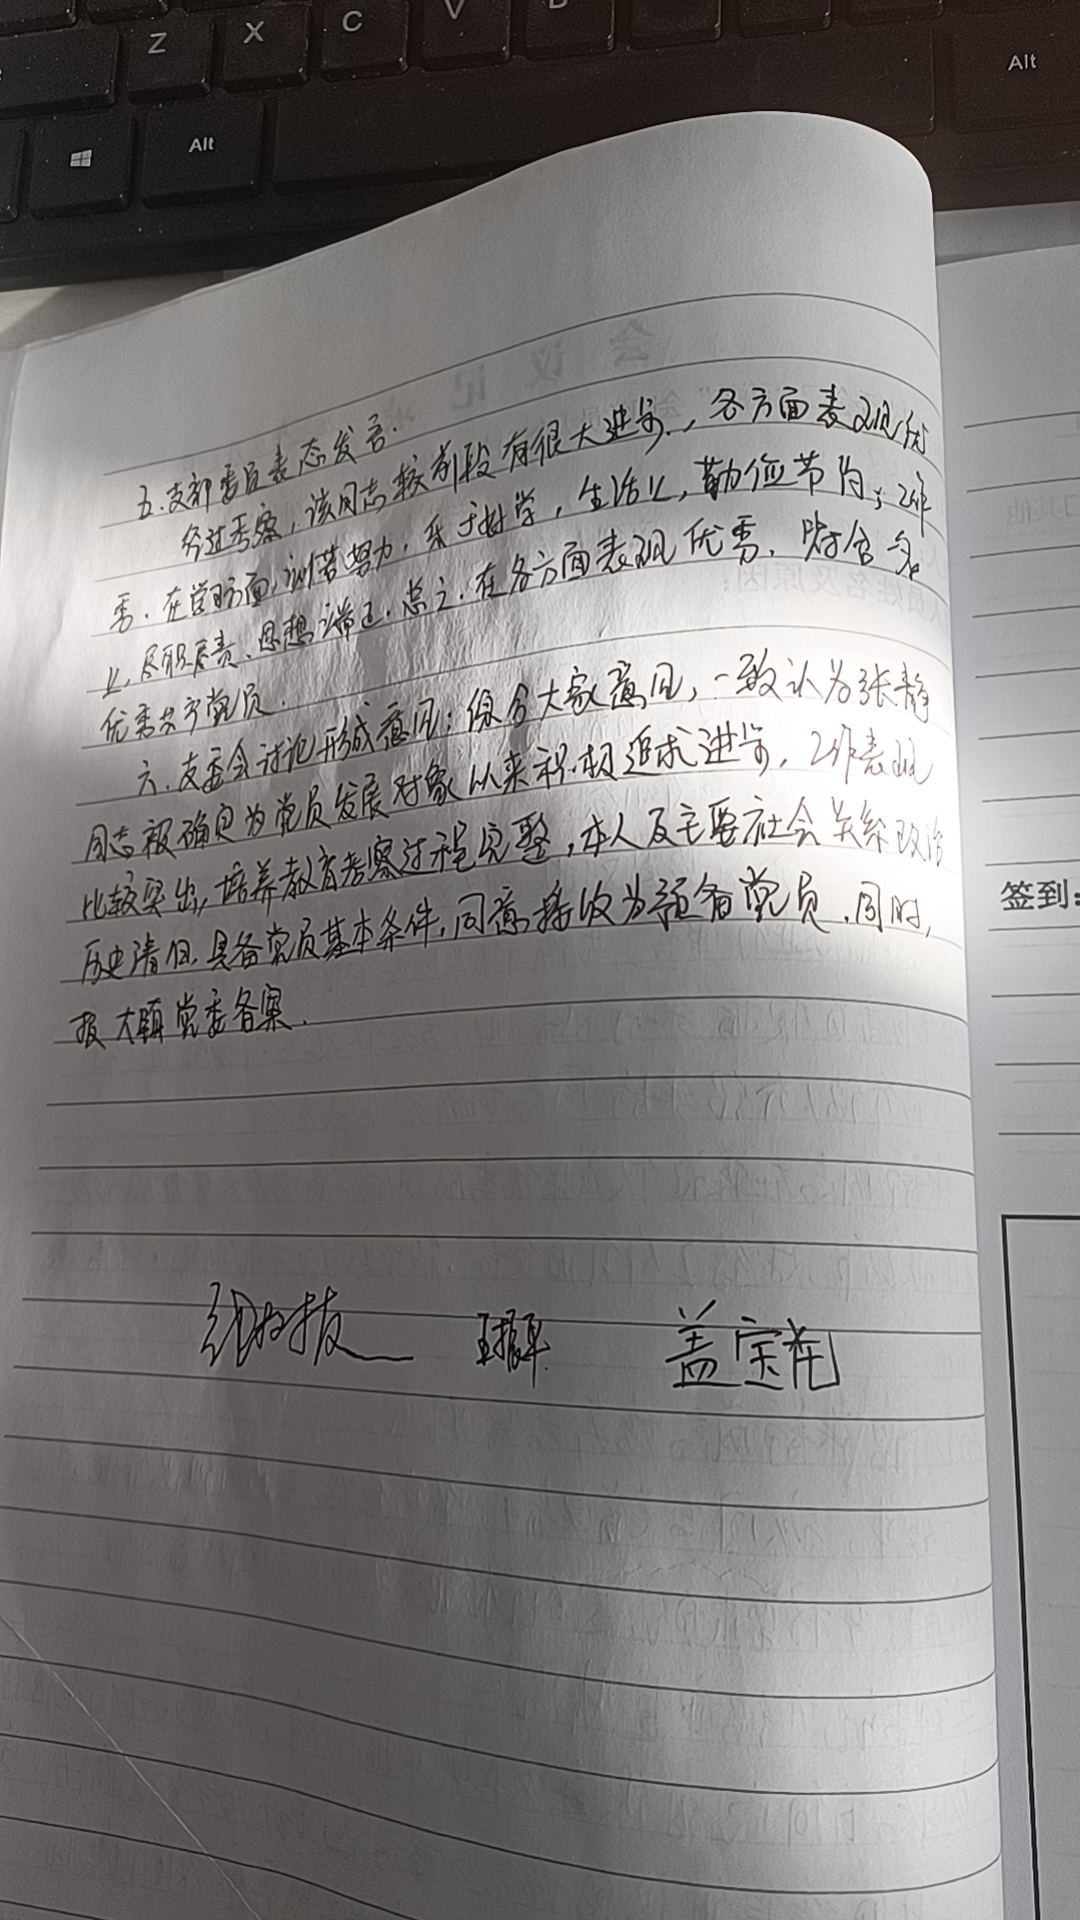 Z X C V B
Alt
Alt
五.支部委员表态发言.
经过考察,该同志较前段有很大进步,各方面表现优
秀.在学习方面,刻苦努力,乐于好学,生活上,勤俭节约;工作
上,尽职尽责、思想端正.总之.在各方面表现优秀.符合
优秀共产党员.
六.支委会讨论形成意见:综合大家意见,一致认为张静
同志被确定为党员发展对象以来积极追求进步,工作表现
比较突出,培养教育考察过程完整,本人及主要社会关系政治
历史清白,具备党员基本条件,同意接收为预备党员.同时,
报大镇党委备案.
盖宗
签到: